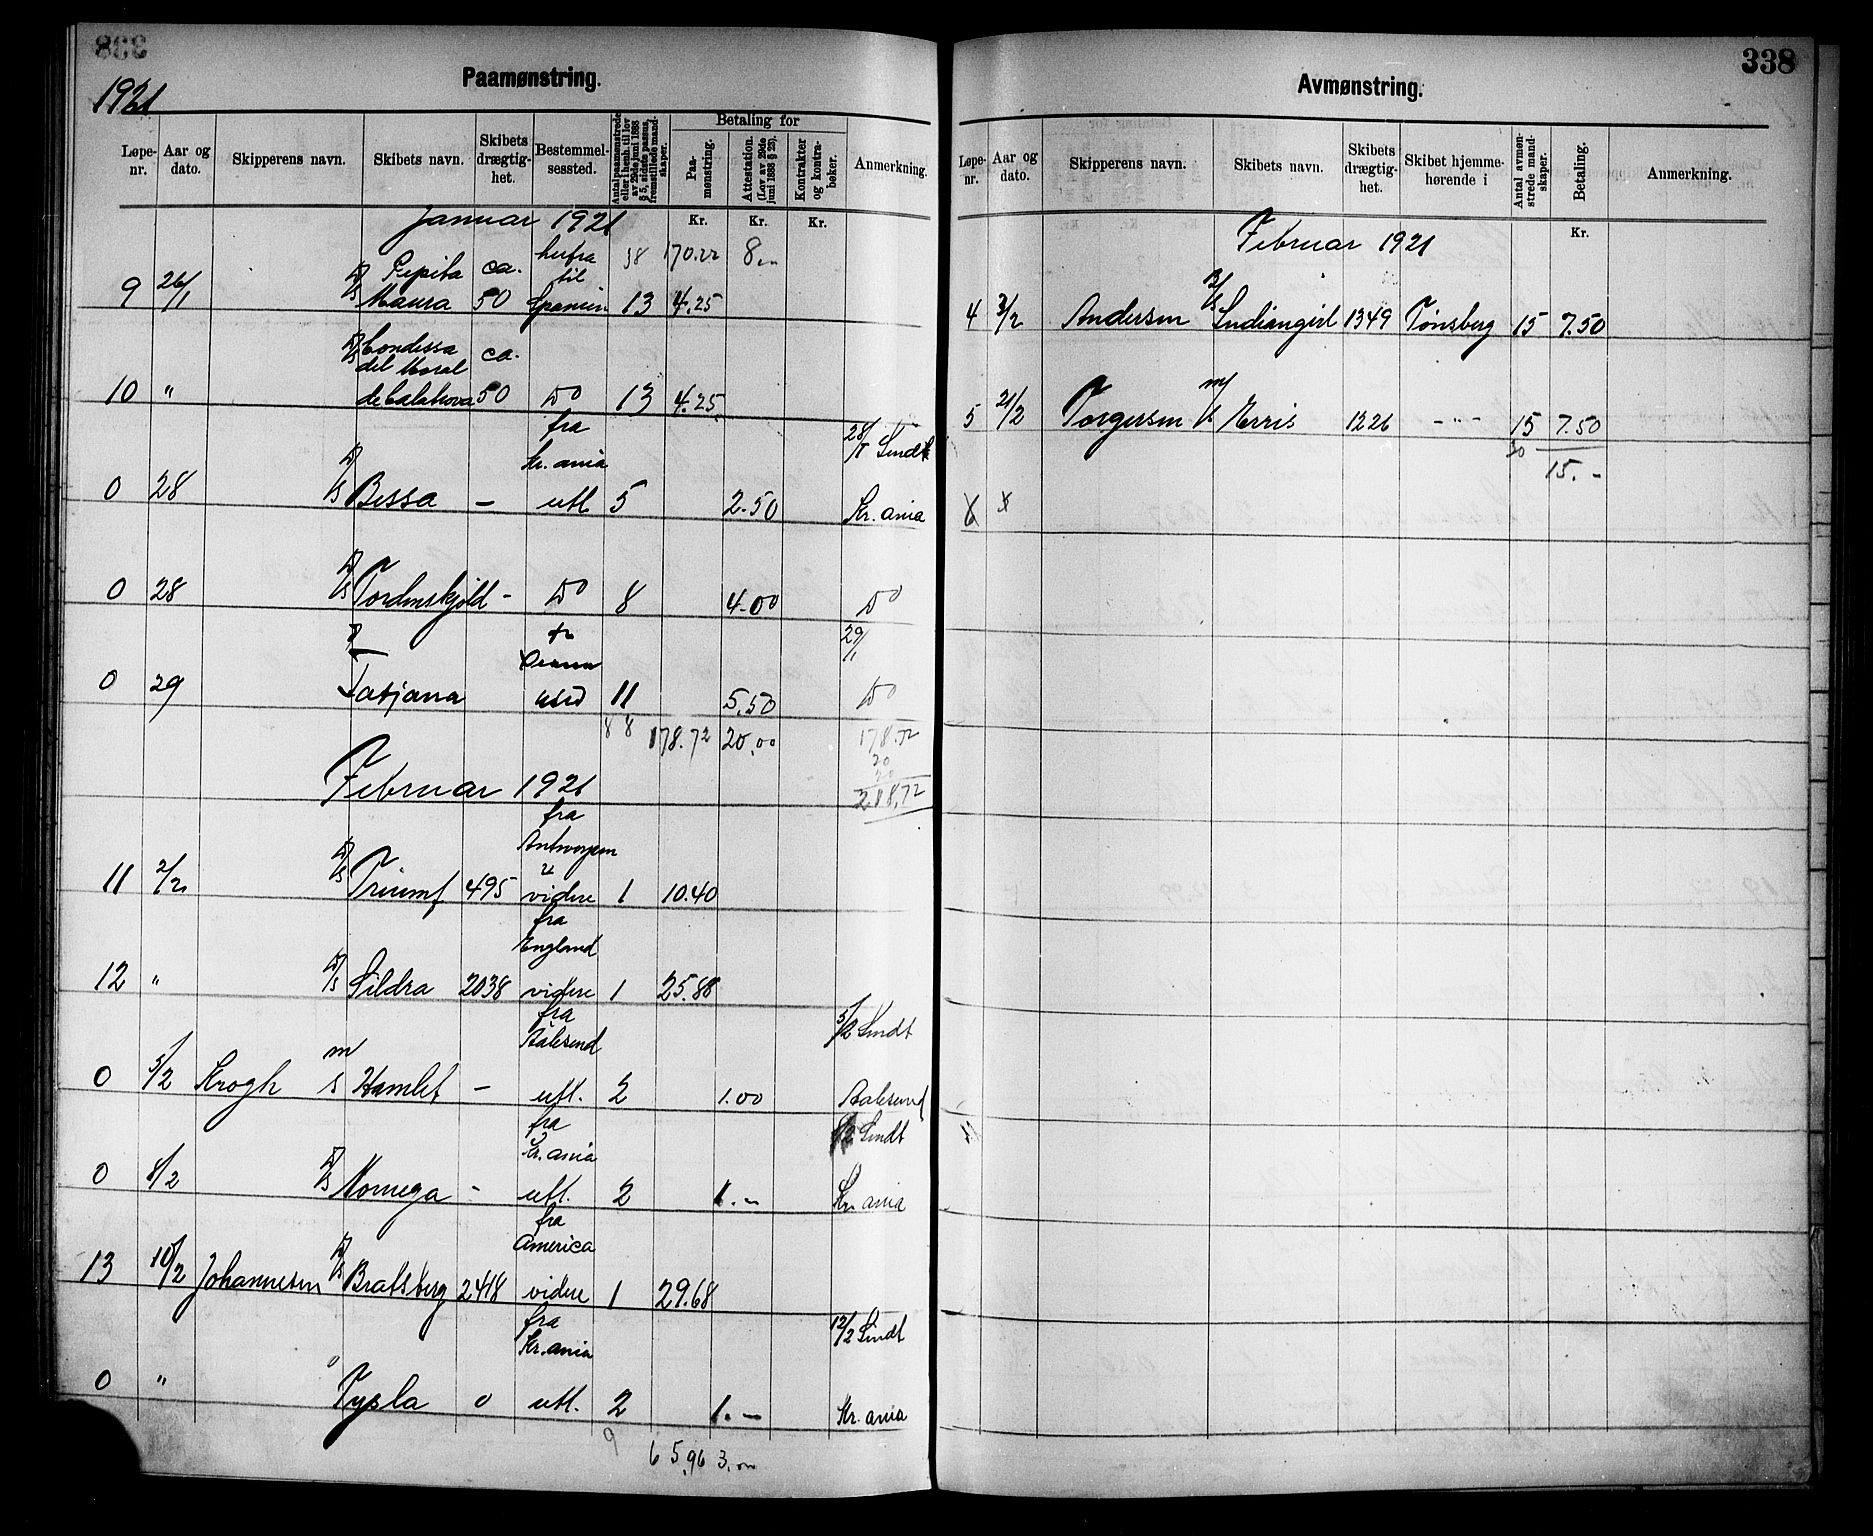 338
1921
Paamønstring.
Løpe-nr. Aar og dato. Skipperens navn. Skibets navn. Skibets drægtig-het. Bestemmel-sessted. Antal paamønstrede eller i henh. til lov av 29de juni 1888 § 5, sidste passus, fremstillede mand-skaper. Betaling for Paa-mønstring. Attestation. (Lov av 29de juni 1888 § 22). Kontrakter og kontra-bøker. Anmerkning.
Januar 1921 Kr. Kr. Kr.
herfra 38 170.22 8.
9 26/1 D/S Pepita Maura ca. 50 til Spanien 13 4.25
10 " D/S Condessa del Moral de Calahova ca. 50 Do 13 4.25
0 28 D/S Bessa – fra Kr.ania utl 5 2.50 28/1 Sendt Kr.ania
0 28 D/S Tordenskjold – Do 8 4.00 Do
0 29 Tatjana 11 5.50 29/1 Do
88 178.72 20.00 178.72
20
20
218,72
Februar 1921
11 2/2 D/S Triumf 495 fra Antwerpen videre 1 10.40
12 " D/S Sildra 2038 fra England videre 1 25.88
0 5/2 Krogh m/s Hamlet – fra Aalesund utl. 2 1.00 5/2 Sendt Aalesund
0 8/2 D/S Nomega – fra Kr.ania utl. 2 1.– Sendt Kr.ania
13 10/2 Johannesen D/S Bratsberg 2418 fra America videre 1 29.68
0 " Tysla 0 fra Kr.ania utl. 2 1.– 12/2 Sendt Kr.ania
9 65,96 3.
338
Avmønstring.
Løpe-nr. Aar og dato. Skipperens navn. Skibets navn. Skibets drægtig-het. Skibet hjemme-hørende i Antal avmøn-strede mand-skaper. Betaling. Anmerkning.
Kr.
Februar 1921
4 3/2 Andersen Indiangirl 1349 Tønsberg 15 7.50
5 21/2 Torgersen m/s Erris 1226 –"– 15 7.50
30 15.–